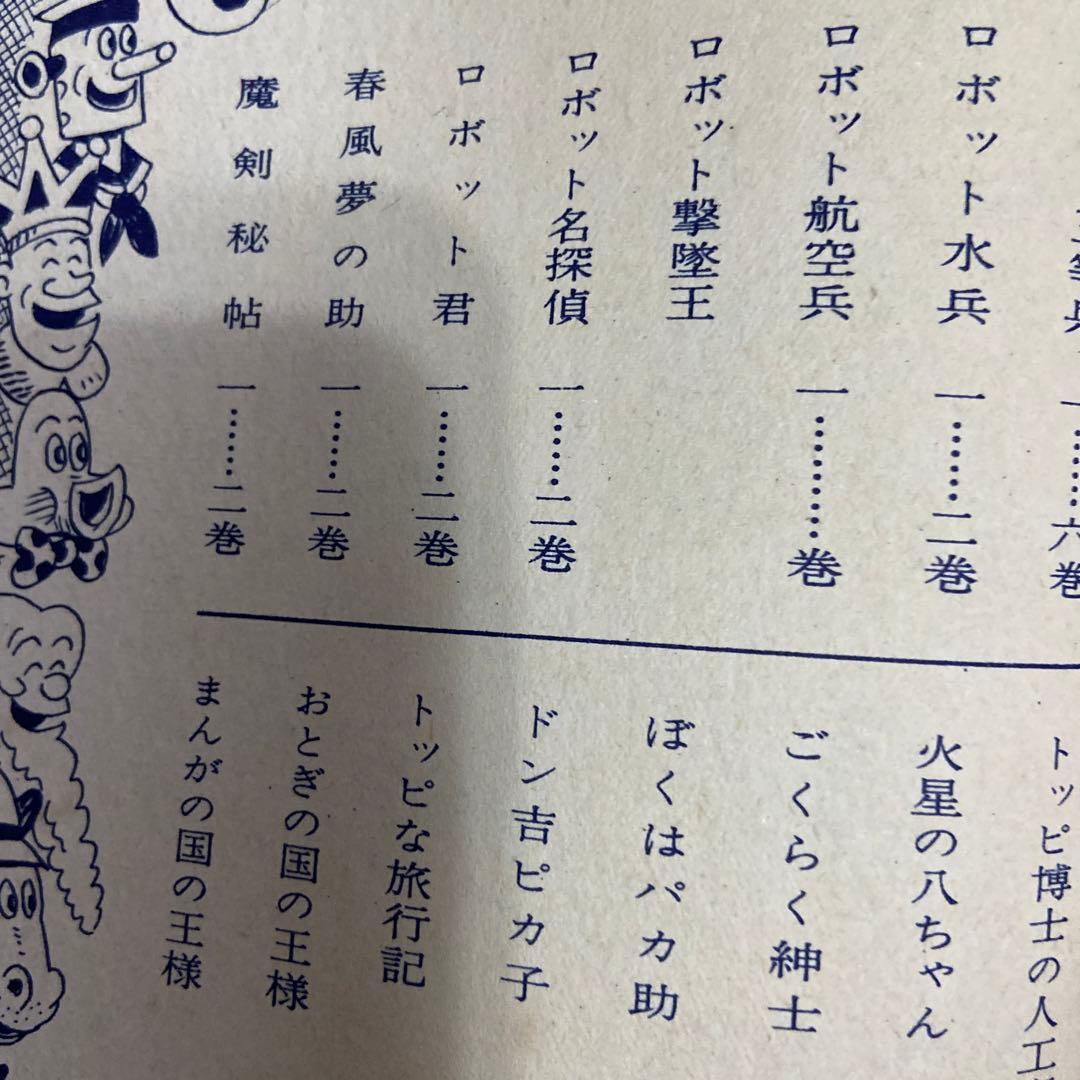 等兵 一……六巻
ロボット水兵 一……二巻
ロボット航空兵 一………巻
ロボット撃墜王
ロボット名探偵 一……二巻
ロボット君 一……二巻
春風夢の助 一……二巻
魔剣秘帖 一……二巻
トッピ博士の人工
火星の八ちゃん
ごくらく紳士
ぼくはパカ助
ドン吉ピカ子
トッピな旅行記
おとぎの国の王様
まんがの国の王様